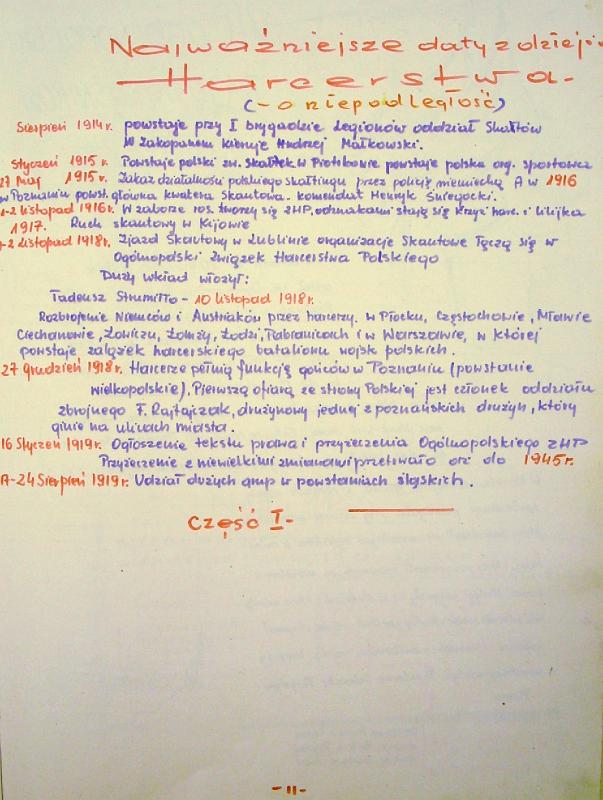 Najważniejsze daty z dziejów
Harcerstwa-
(-o niepodległość)
Sierpień 1914r. powstaje przy I brygadzie Legionów oddział Skałtów
W Zakopanem kieruje Andrzej Małkowski.
Styczeń 1915r. Powstaje polski zw. skałtek w Piotrkowie powstaje polska org. sportowa
27 Maj 1915r. Zakaz działalności polskiego skałtingu przez policję niemiecką A w 1916
w Poznaniu powst. główna kwatera Skautowa. komendat Henryk Śniegocki.
1-2 Listopad 1916r. W zaborze ros. tworzy się ZHP, odznakami stają się krzyż harc. i lilijka
1917. Ruch skautowy w Kijowie
1-2 Listopad 1918r. Zjazd Skautowy w Lublinie organizacje Skautowe łączą się w
Ogólnopolski Związek Harcerstwa Polskiego
Duży wkład włożył:
Tadeusz Strumiłło - 10 listopad 1918r.
Rozbrojenie Niemców i Austriaków przez harcerzy. w Płocku, Częstochowie, Mławie
Ciechanowie, Łowiczu, Łomży, Łodzi, Pabianicach i w Warszawie, w której
powstaje zalążek harcerskiego batalionu wojsk polskich.
27 Grudzień 1918r. Harcerze pełnią funkcję gońców w Poznaniu (powstanie
wielkopolskie), Pierwszą ofiarą ze strony Polskiej jest członek oddziału
zbrojnego F. Rajtajczak, drużynowy jednej z poznańskich drużyn, który
ginie na ulicach miasta.
16 Styczeń 1919r. Ogłoszenie tekstu prawa i przyrzeczenia Ogólnopolskiego ZHP
Przyrzeczenie z niewielkimi zmianami przetrwało aż do 1945r.
A-24 Sierpień 1919r. Udział dużych grup w powstaniach śląskich.
Część I-
-11-